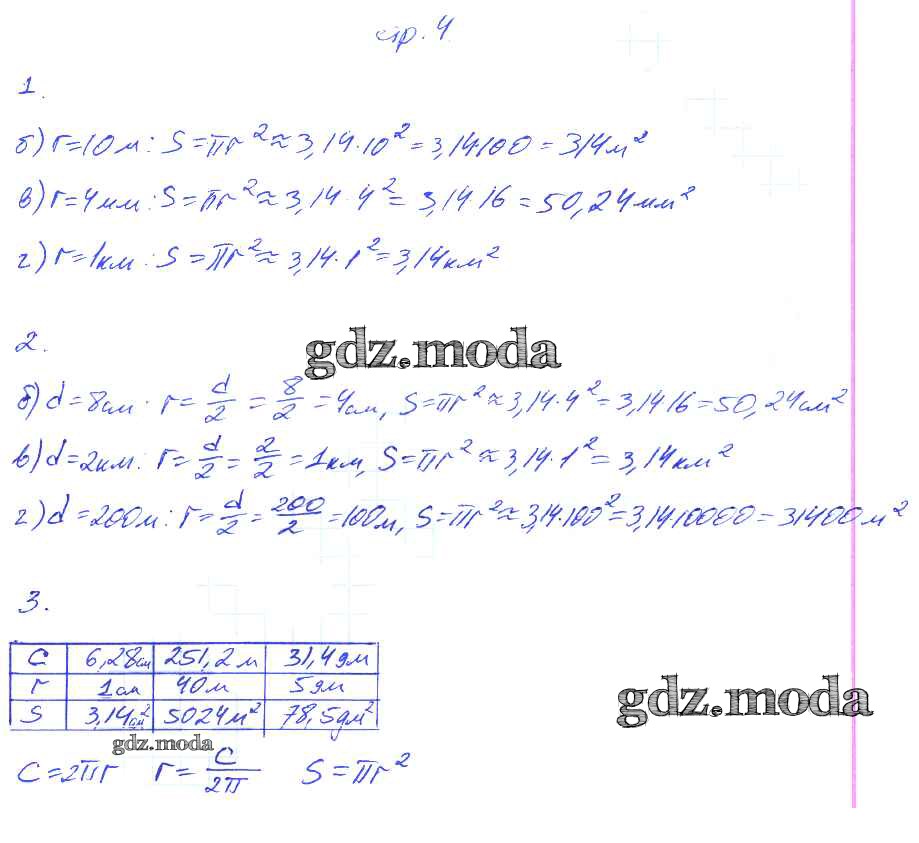 стр. 4.
1.
б) r=10м: S=πr²≈3,14·10²=3,14·100=314м²
в) r=4мм: S=πr²≈3,14·4²=3,14·16=50,24мм²
г) r=1км: S=πr²≈3,14·1²=3,14км²
2.
gdz.moda
б) d=8см: r=d/2=8/2=4см, S=πr²≈3,14·4²=3,14·16=50,24см²
в) d=2км: r=d/2=2/2=1км, S=πr²≈3,14·1²=3,14км²
г) d=200м: r=d/2=200/2=100м, S=πr²≈3,14·100²=3,14·10000=31400м²
3.
C 6,28см 251,2м 31,4дм
r 1см 40м 5дм
S 3,14см² 5024м² 78,5дм²
gdz.moda
gdz.moda
C=2πr r=C/2π S=πr²